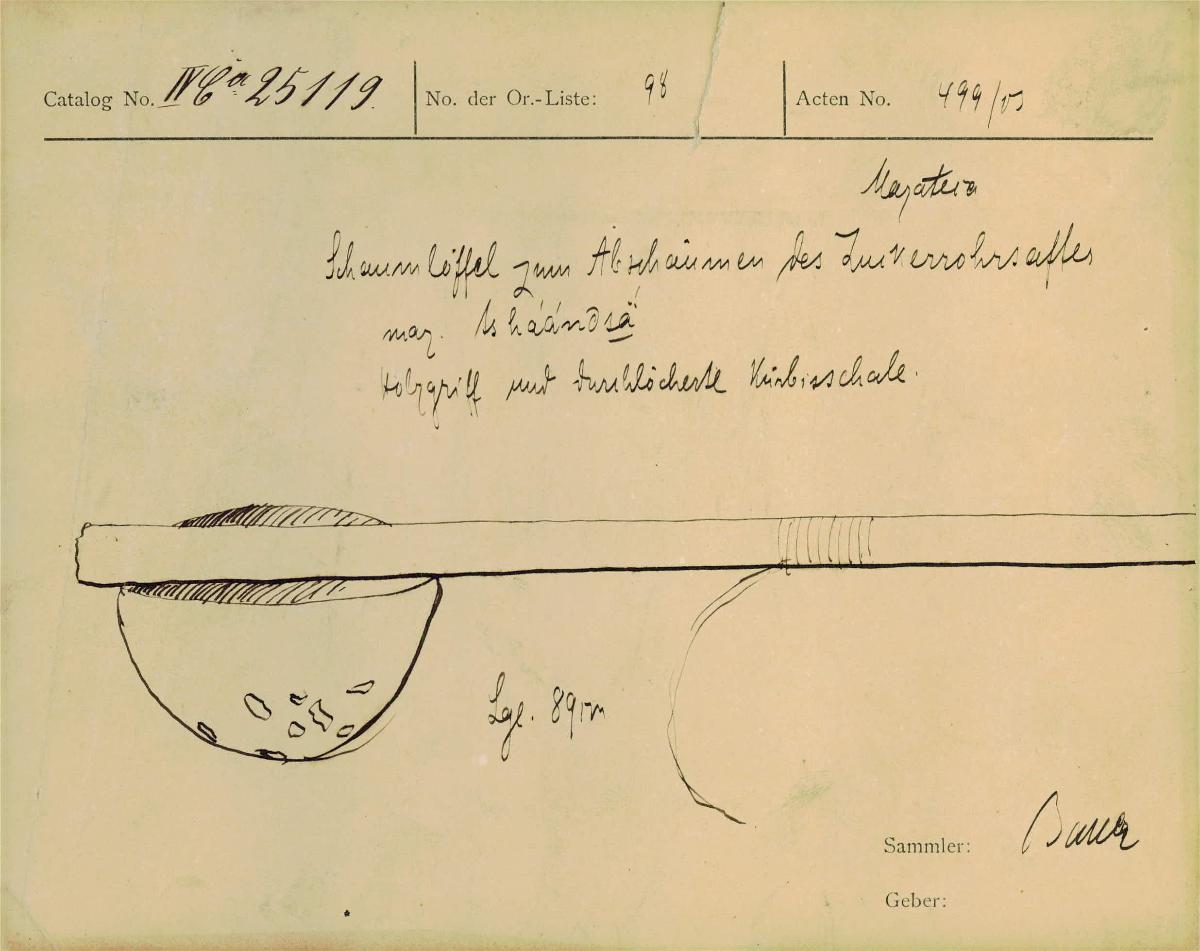 Catalog No. IV Ca 25119. No. der Or.-Liste: 98 Acten No. 499/03
Mazateca
Schaumlöffel zum Abschäumen des Zuckerrohrsaftes
maz.
Holzgriff und durchlöcherte Kürbisschale.
Lge. 89cm
Sammler: Bauer
Geber: